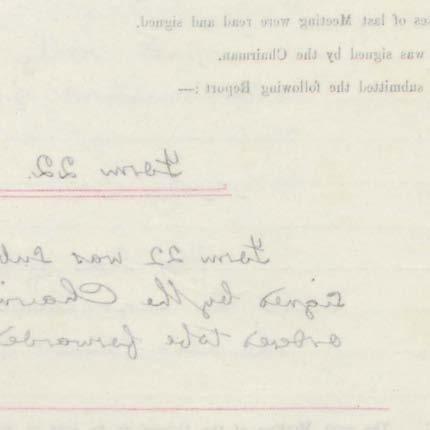 tes of last Meeting were read and signed.
was signed by the Chairman.
submitted the following Report :—
Form 22.
Form 22 was sub
signed by the Chair
ordered to be forwarded